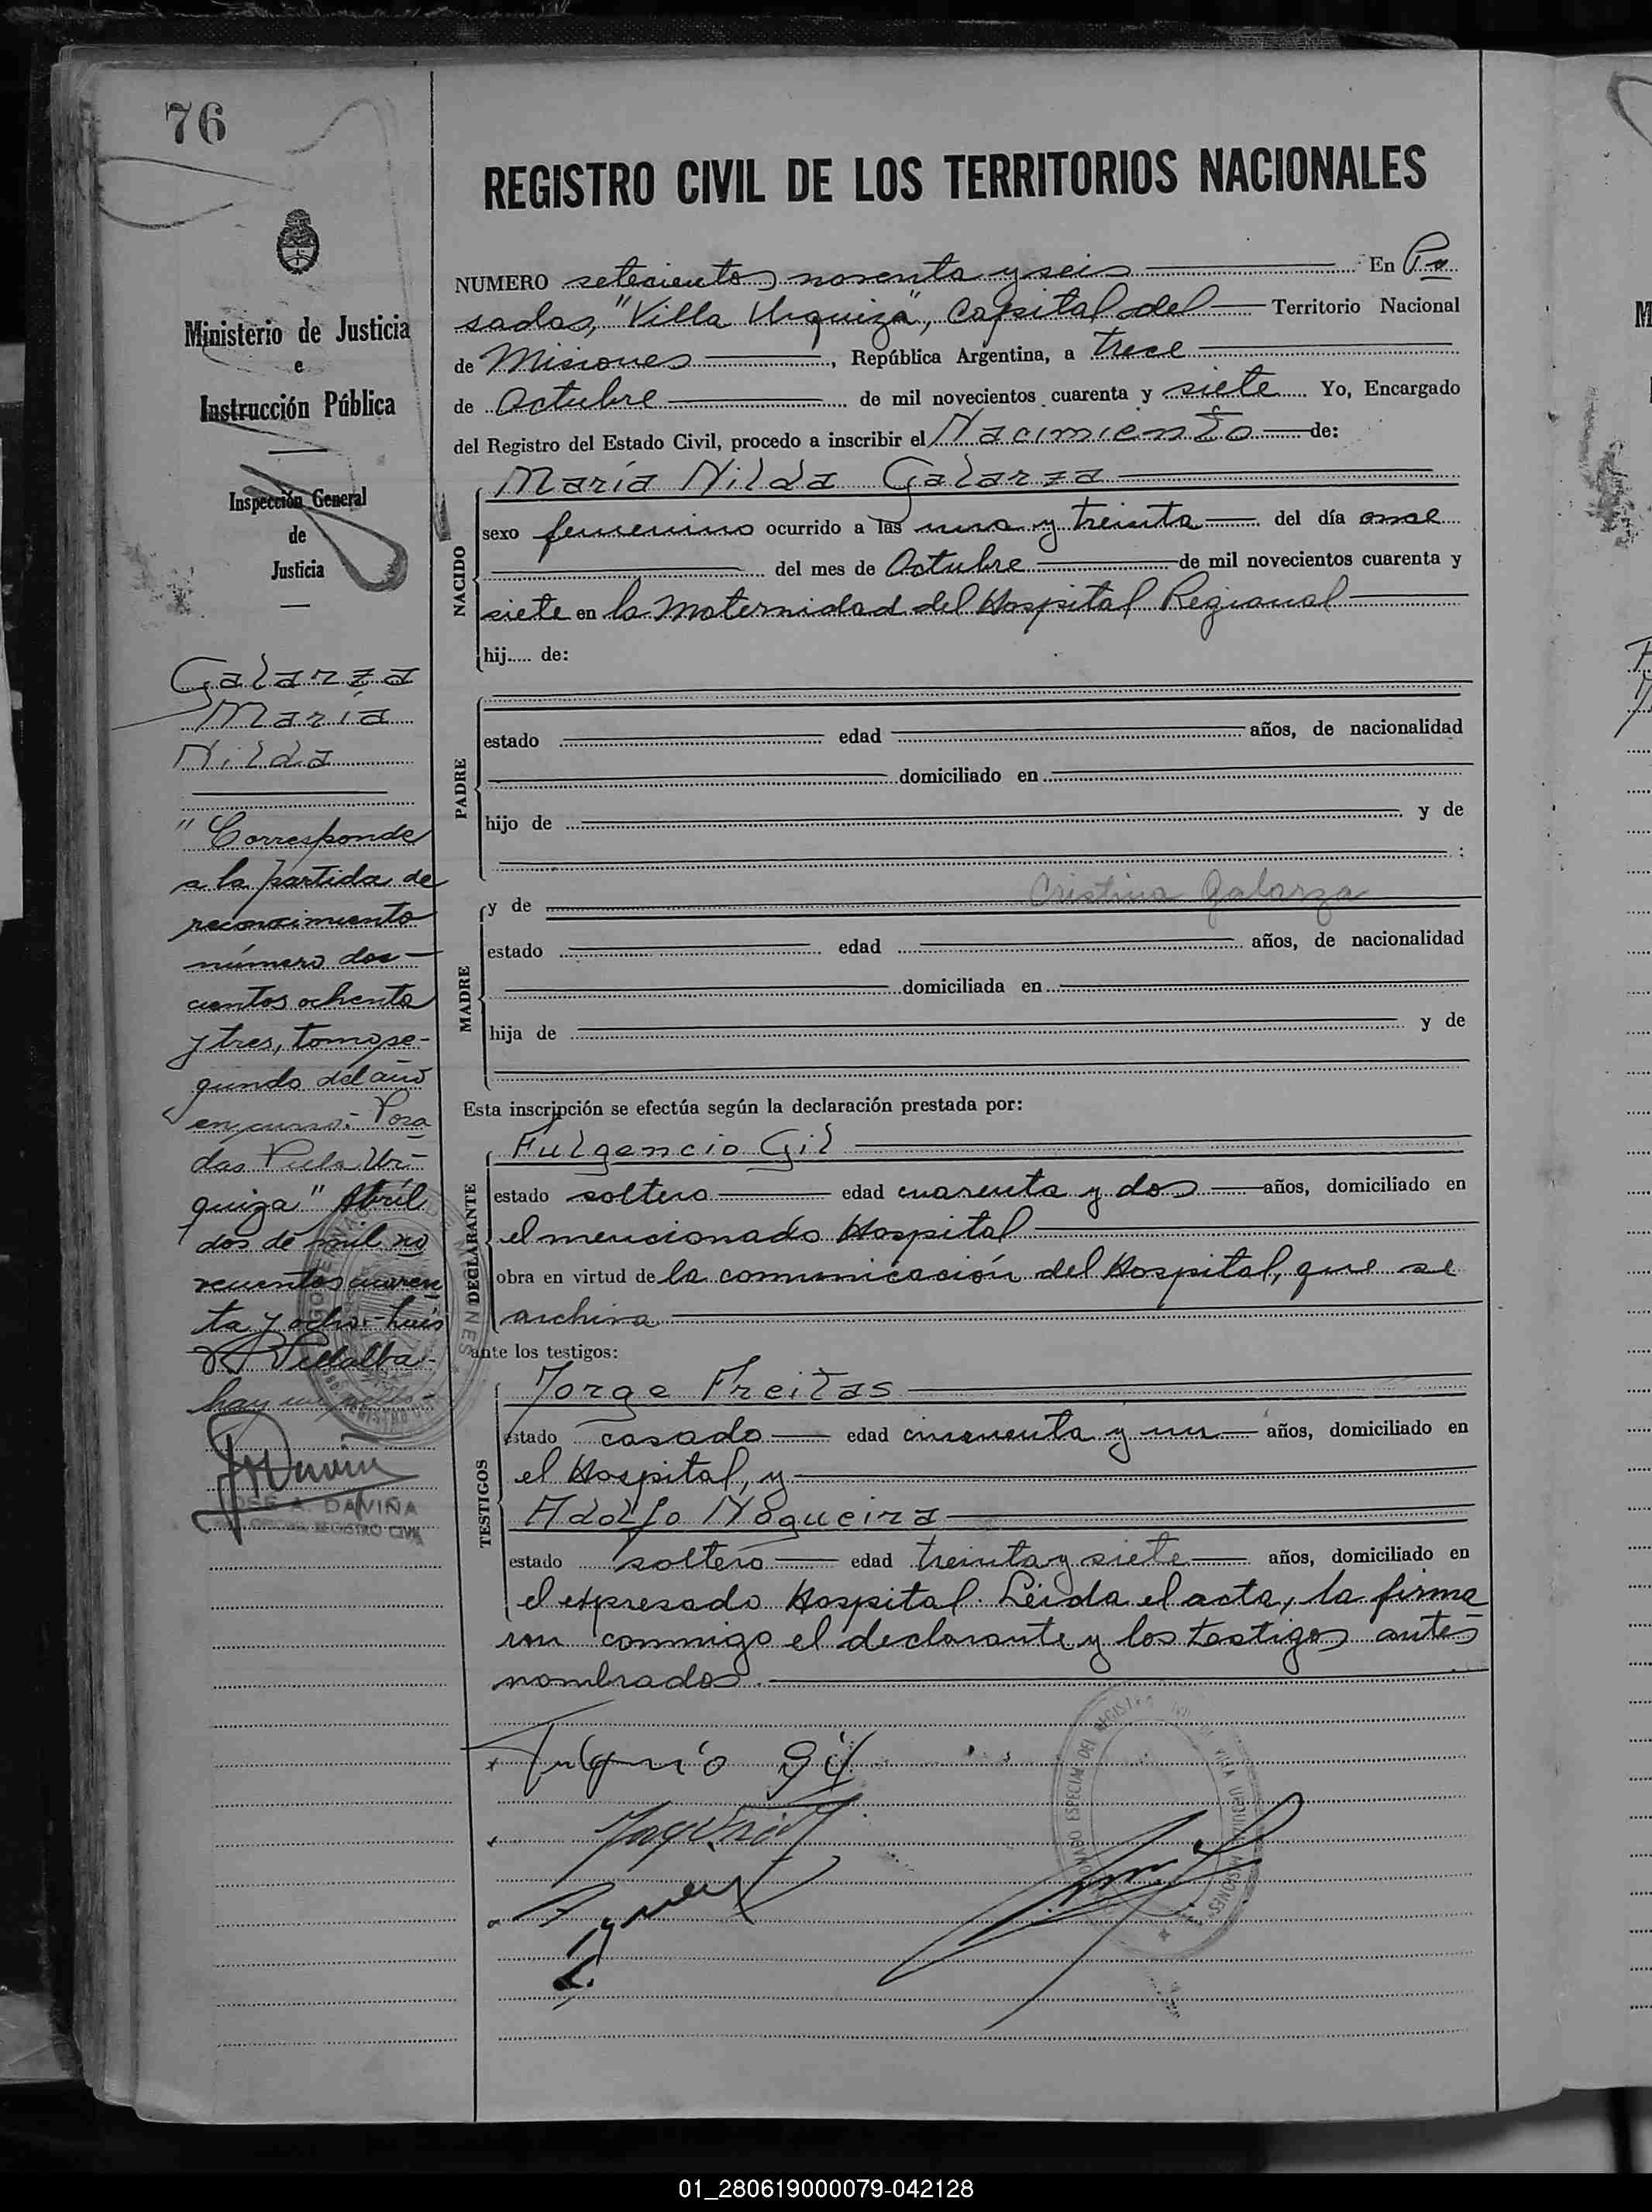 76
REGISTRO CIVIL DE LOS TERRITORIOS NACIONALES
Ministerio de Justicia
e
Instrucción Pública
Inspección General
de
Justicia
Galarza
María
Nilda
"Corresponde
a la partida de
reconocimiento
número dos-
cientos ochenta
y tres, tomo se-
gundo del año
en curso.- Posa
das Villa Ur-
quiza" Abril
dos de mil no
vecientos cuaren
ta y ocho.- Luis
A Villalba-
hay un sello-
JOSE A. DAVIÑA
REGISTRO CIVIL
NUMERO setecientos noventa y seis En Po
sadas, "Villa Urquiza", Capital del Territorio Nacional
de Misiones, República Argentina, a trece
de Octubre de mil novecientos cuarenta y siete Yo, Encargado
del Registro del Estado Civil, procedo a inscribir el Nacimiento de:
NACIDO
María Nilda Galarza
sexo femenino ocurrido a las una y treinta del día once
del mes de Octubre de mil novecientos cuarenta y
siete en la Maternidad del Hospital Regional
hij..... de:
PADRE
estado edad años, de nacionalidad
domiciliado en
hijo de y de
:
MADRE
y de Cristina Galarza
estado edad años, de nacionalidad
domiciliada en
hija de y de
Esta inscripción se efectúa según la declaración prestada por:
DECLARANTE
Fulgencio Gil
estado soltero edad cuarenta y dos años, domiciliado en
el mencionado Hospital
obra en virtud de la comunicación del Hospital, que se
archiva
ante los testigos:
TESTIGOS
Jorge Freitas
estado casado edad cincuenta y un años, domiciliado en
el Hospital, y
Adolfo Nogueira
estado soltero edad treinta y siete años, domiciliado en
el expresado Hospital. Leída el acta, la firma
ron conmigo el declarante y los testigos antes
nombrados.
Fulgencio Gil
01_280619000079-042128